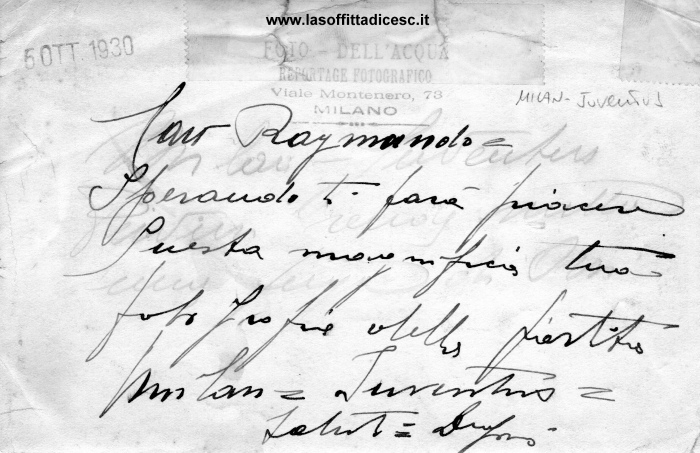 www.lasoffittadicesc.it
5 OTT. 1930
FOTO - DELL'ACQUA
REPORTAGE FOTOGRAFICO
Viale Montenero, 73
MILANO
MILAN - JUVENTUS
Caro Raymondo =
Sperando ti farà piacere
Questa magnifica tua
fotografia della partita
Milan = Juventus =
Saluti =